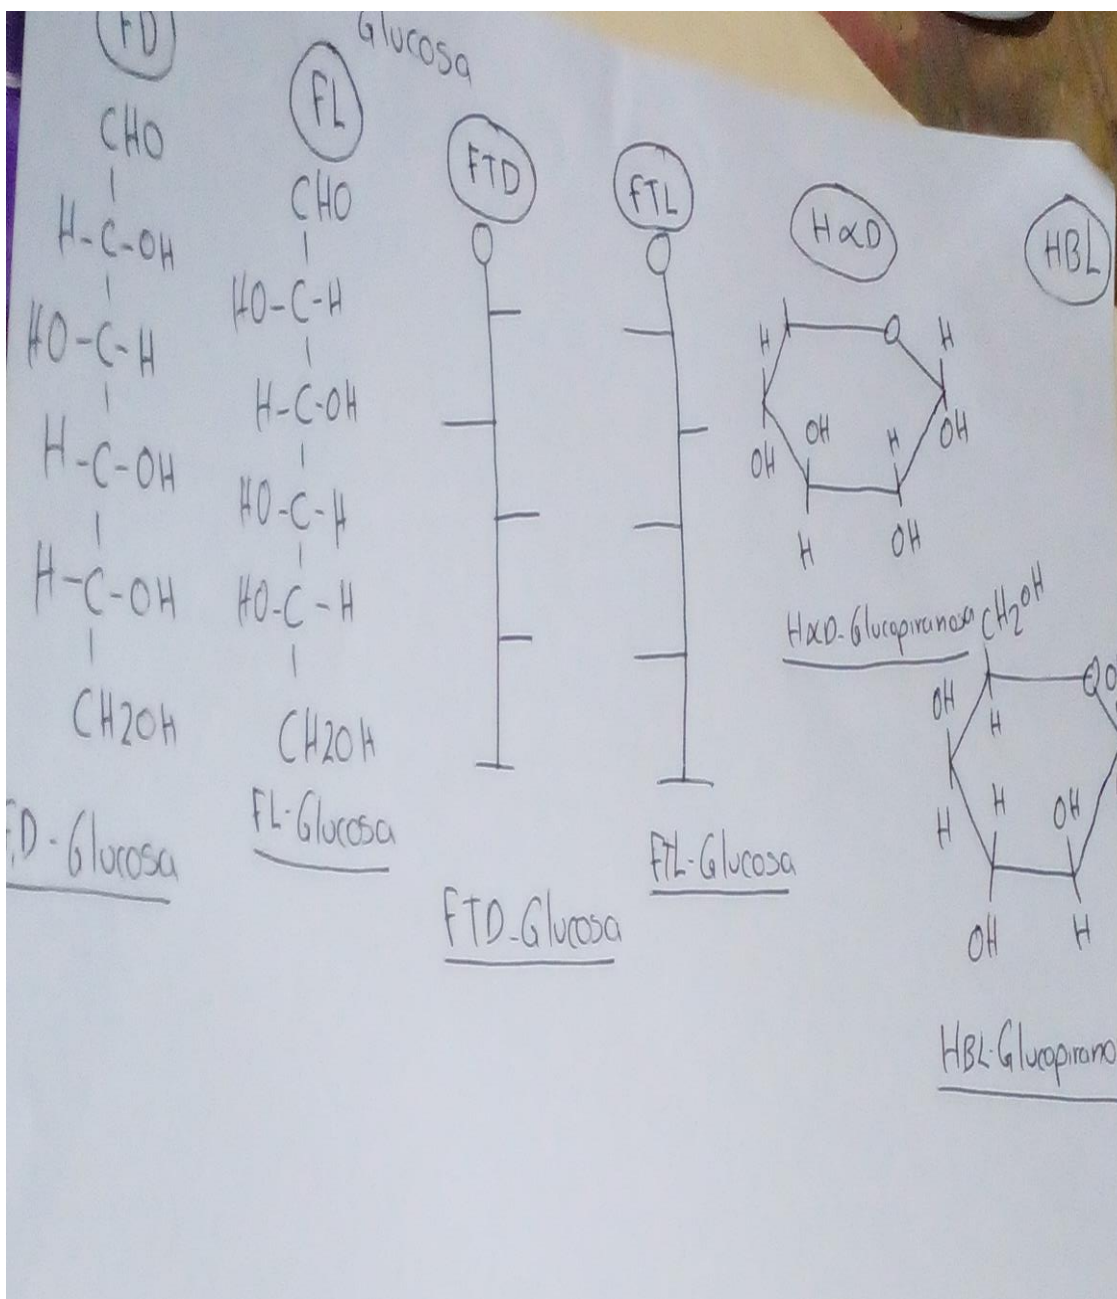 Glucosa
FD
CHO
H-C-OH
HO-C-H
H-C-OH
H-C-OH
CH2OH
D-Glucosa
FL
CHO
HO-C-H
H-C-OH
HO-C-H
HO-C-H
CH2OH
FL-Glucosa
FTD
FTD-Glucosa
FTL
FTL-Glucosa
HαD
H O H
OH H
OH OH
H OH
HαD-Glucopiranosa
HBL
CH2OH
OH O
H
H OH
H
OH H
HBL-Glucopirano